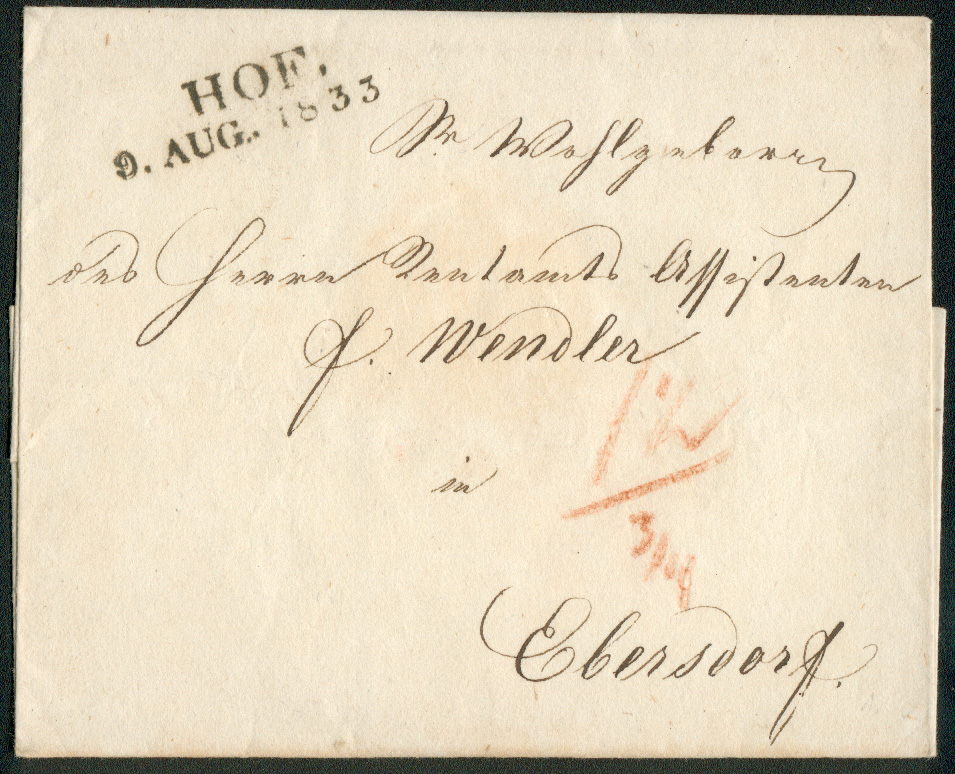 HOF.
9. AUG. 1833
Sr Wohlgeborn
des Herrn Rentamts Assistenten
f. Wendler
in
Ebersdorf.